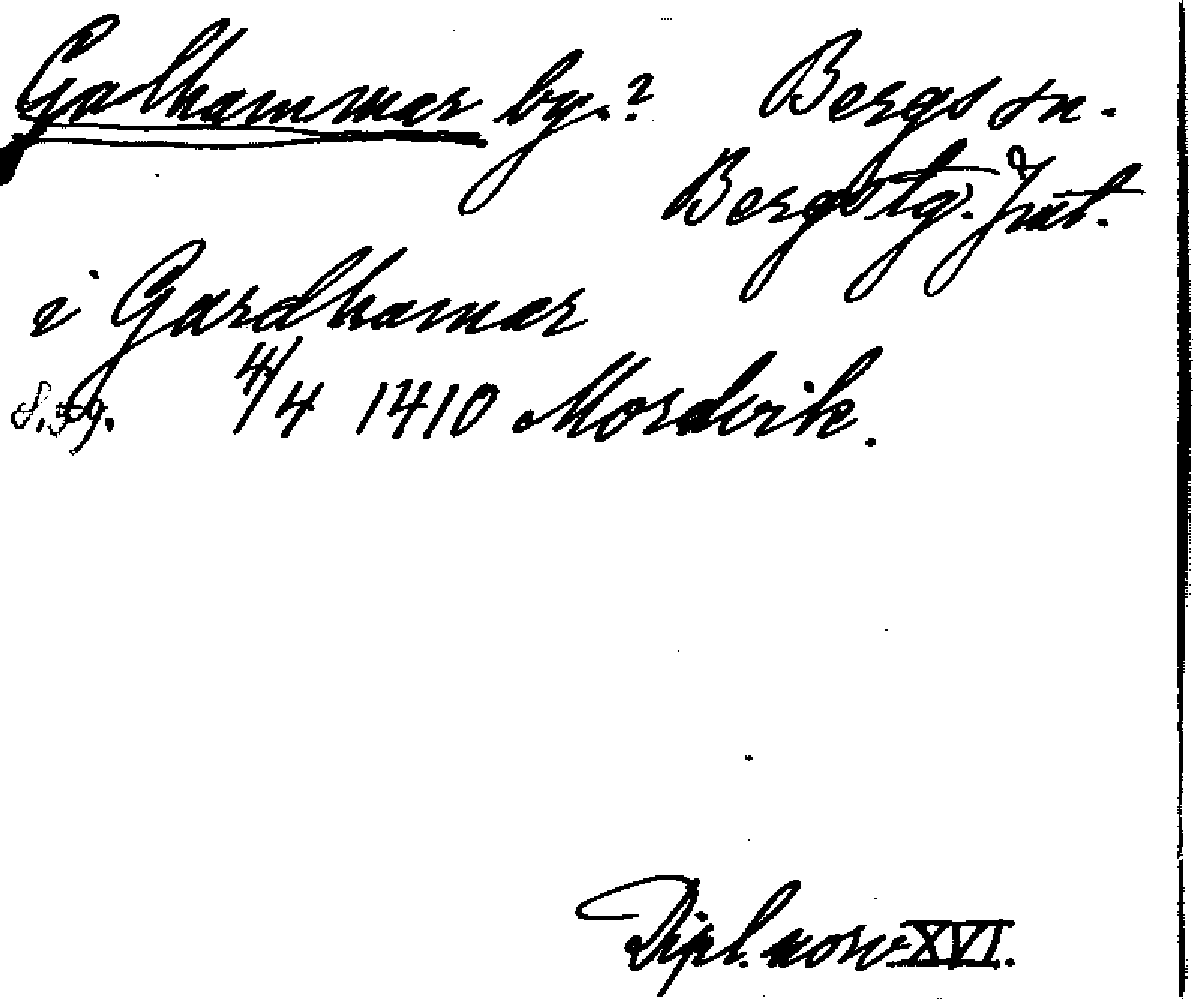 Galhammar by.? Bergs sn.
Bergs tg. Jmt.
i Gardhamar
s. 59. 4/4 1410 Mordvik.
Dipl. norv. XVI.